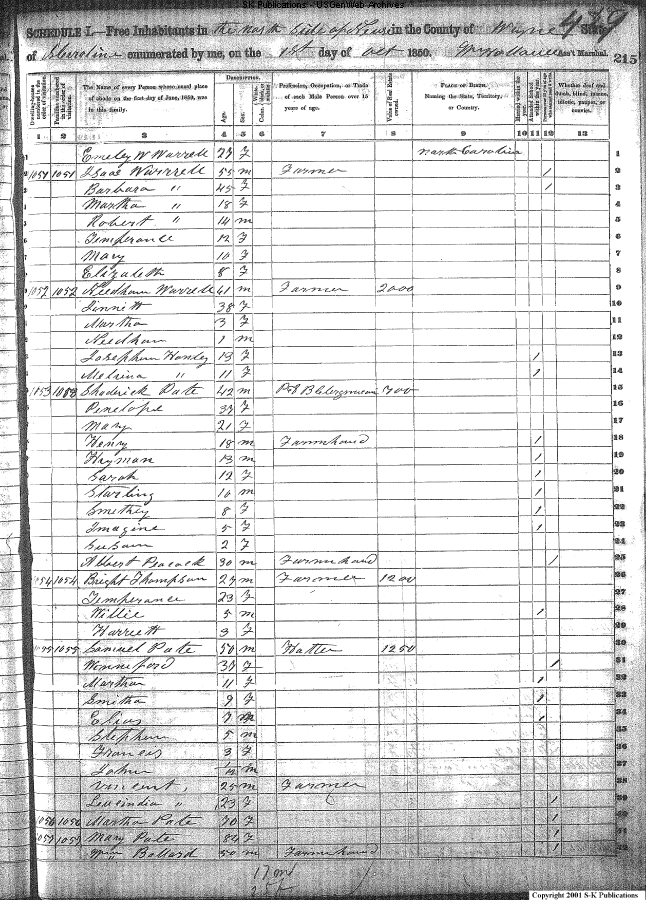 S-K Publications - USGenWeb Archives
SCHEDULE I.—Free Inhabitants in the north side of Neuse in the County of Wayne State 429
of N Carolina enumerated by me, on the 1st day of Oct 1850. Wallace Ass't Marshal. 215
Dwelling-houses numbered in the order of visitation.
Families numbered in the order of visitation.
The Name of every Person whose usual place of abode on the first day of June, 1850, was in this family.
DESCRIPTION.
Age.
Sex.
Color
Profession, Occupation, or Trade of each Male Person over 15 years of age.
Value of Real Estate owned.
PLACE OF BIRTH. Naming the State, Territory, or Country.
Married within the year.
Attended School within the year.
Whether deaf and dumb, blind, insane, idiotic, pauper, or convict.
1 2 3 4 5 6 7 8 9 10 11 12 13
Emeley W Warrell 27 F North Carolina 1
2 1051 1051 Isaac Warrrell 55 m Farmer / 2
Barbara " 45 F / 3
Martha " 18 F 4
Robert " 14 m 5
Temperance 12 F 6
Mary 10 F 7
Elizabeth 8 F 8
1052 1052 Needham Warrell 41 m Farmer 2000 9
Linnett 38 F 10
Martha 3 F 11
Needham 1 m 12
Josephen Honley 13 F / 13
Melvina " 11 F / 14
1053 1053 Shaderick Pate 42 m P B Clergyman 700 15
Penelope 39 F 16
Mary 21 F 17
Henry 18 m Farmhand / 18
Hayman 13 m / 19
Sarah 12 F / 20
Starling 10 m / 21
Smithey 8 F / 22
Imagine 5 F / 23
Susan 2 F 24
Albert Peacock 30 m Farmhand / 25
1054 1054 Bright Thompson 27 m Farmer 1200 26
Temperance 23 F 27
Willie 5 m / 28
Harriett 3 F 29
1055 1055 Samuel Pate 50 m Hatter 1250 30
Winneford 37 F / 31
Martha 11 F / 32
Smitha 9 F / 33
Elias 7 m / 34
Stephen 5 m 35
Frances 3 F 36
John m 37
Vincent " 25 m Farmer 38
Lucindia " 23 F / 39
1056 1056 Martha Pate 70 F / 40
1057 1057 Mary Pate 82 F / 41
Wm Ballard 50 m Farmhand / 42
17 m
25 F
Copyright 2001 S-K Publications